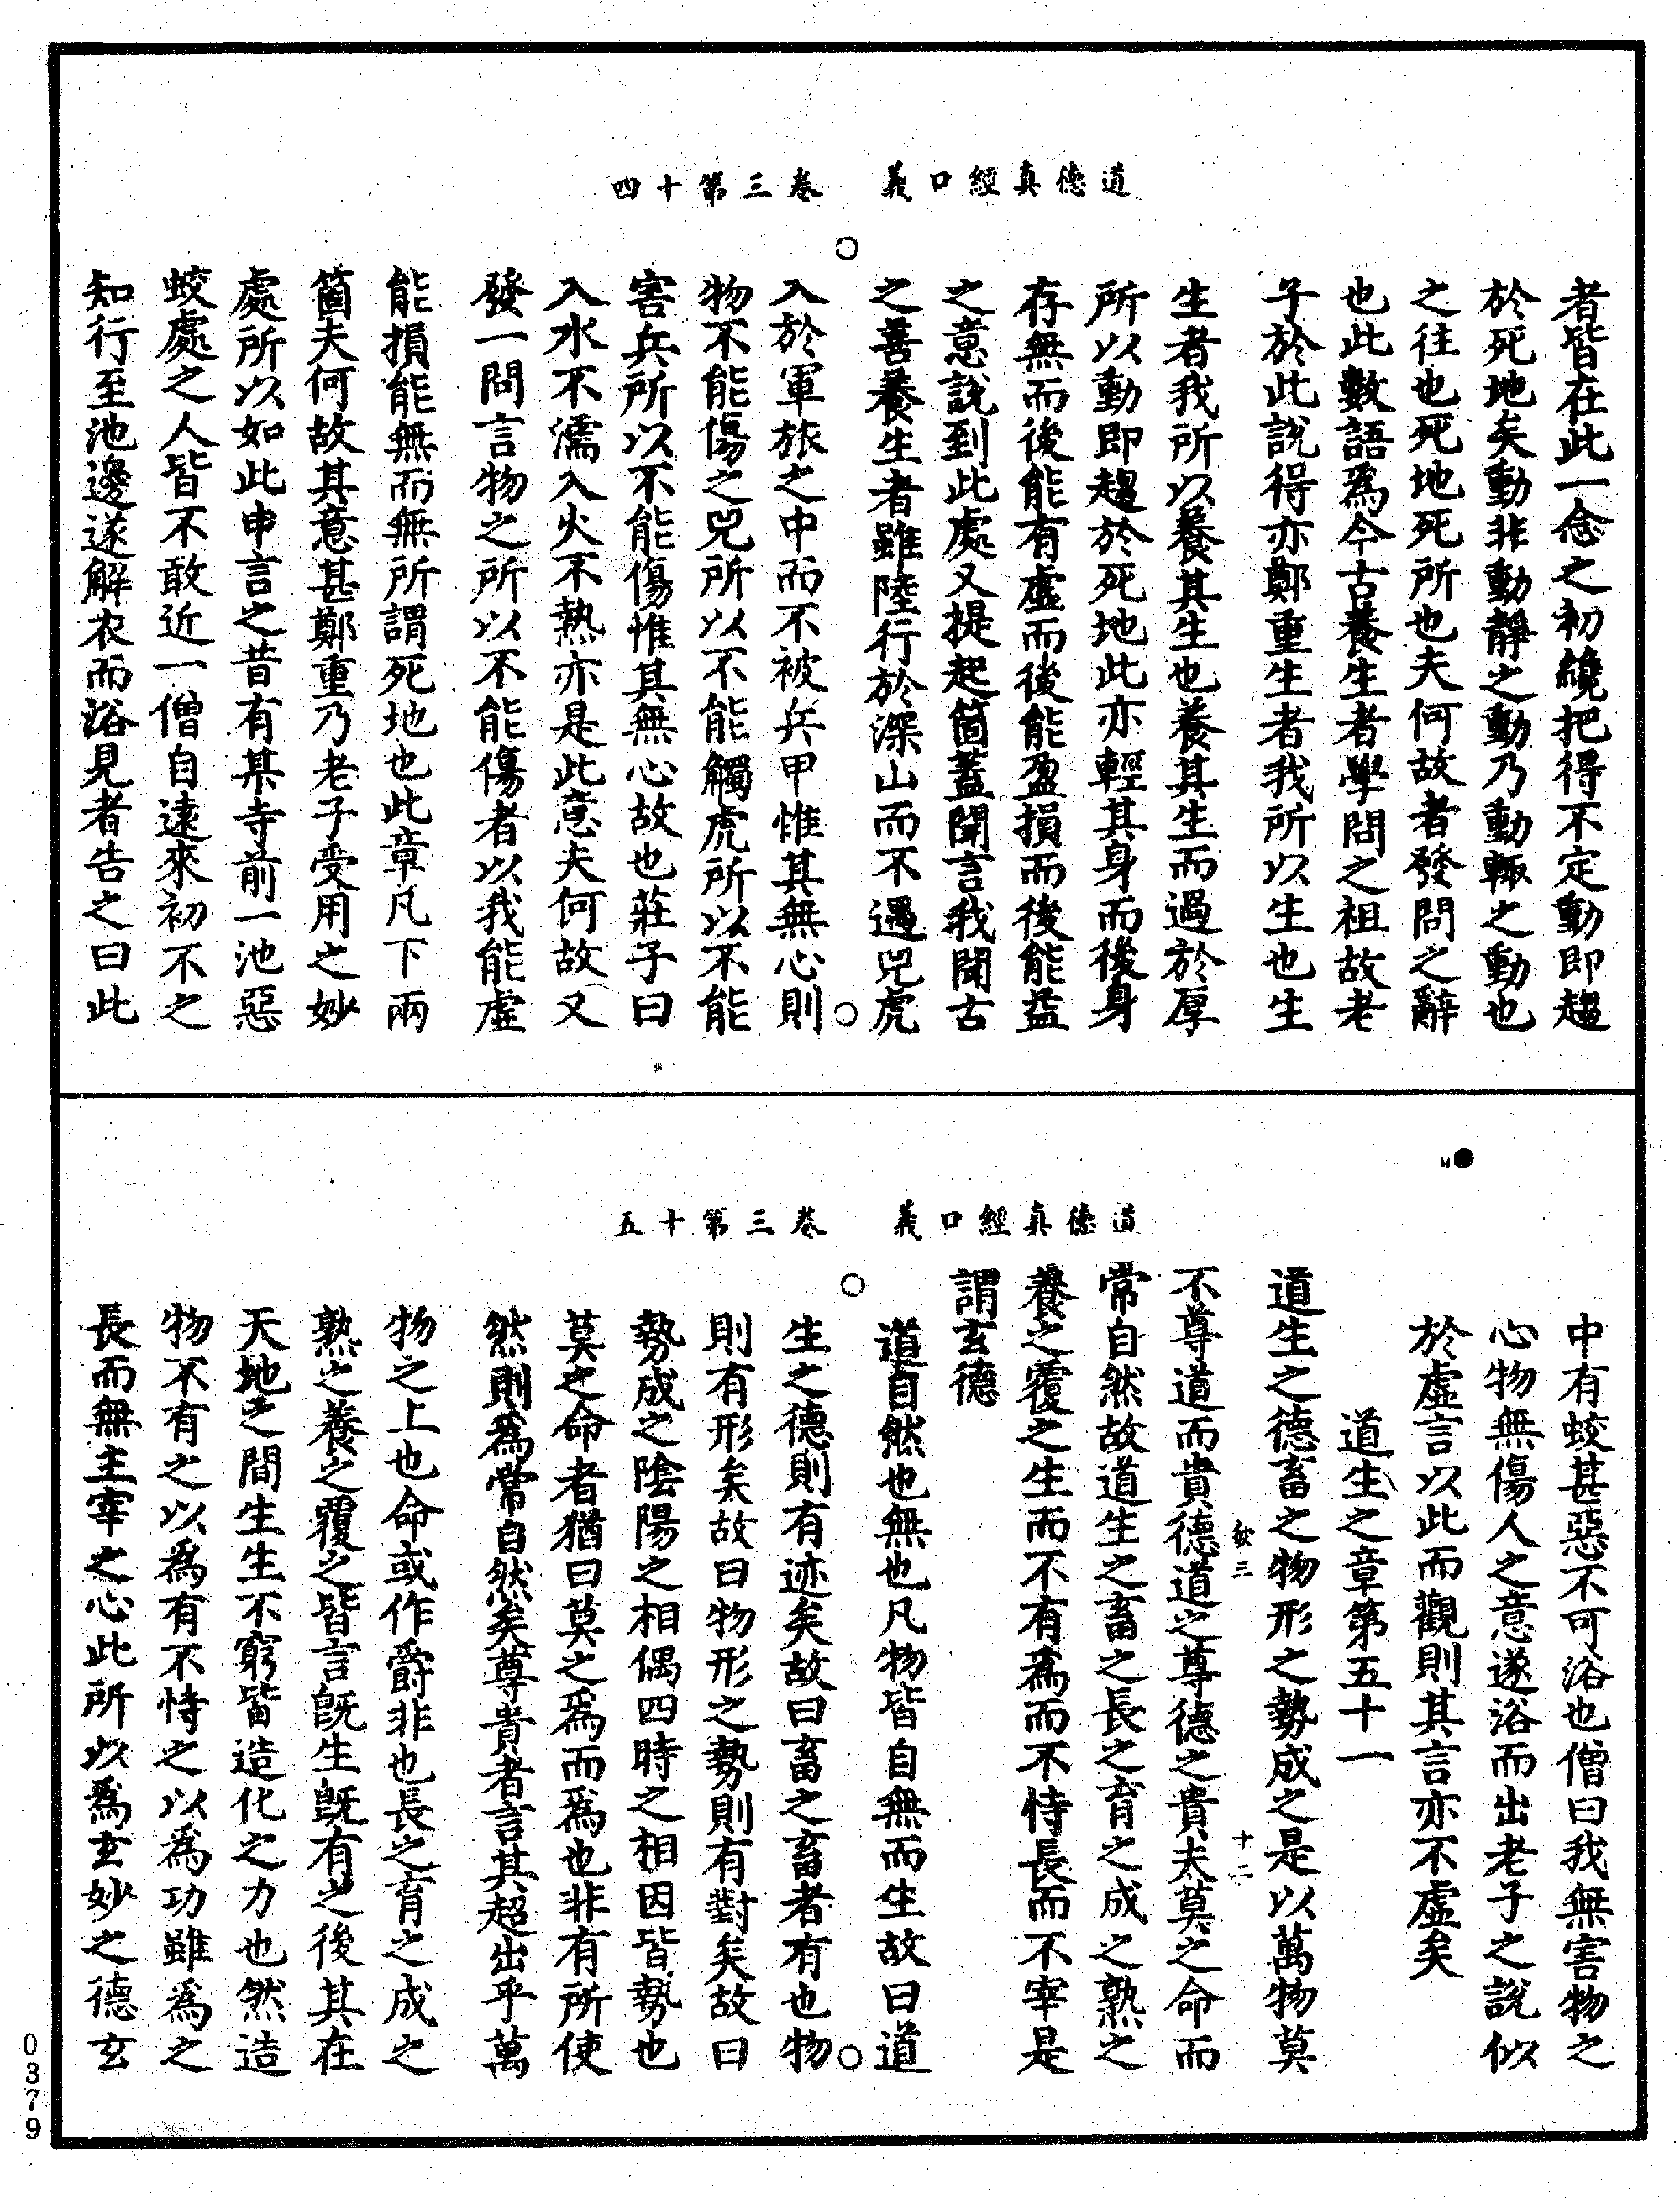 道德真經口義　卷三第十四
者皆在此一念之初纔把得不定動即趨
於死地矣動非動靜之動乃動輒之動也
之往也死地死所也夫何故者發問之辭
也此數語爲今古養生者學問之祖故老
子於此說得亦鄭重生者我所以生也生
生者我所以養其生也養其生而過於厚
所以動即趨於死地此亦輕其身而後身
存無而後能有虛而後能盈損而後能益
之意說到此處又提起箇蓋聞言我聞古
之善養生者雖陸行於深山而不遇兕虎
入於軍旅之中而不被兵甲惟其無心則
物不能傷之兕所以不能觸虎所以不能
害兵所以不能傷惟其無心故也莊子曰
入水不濡入火不熱亦是此意夫何故又
發一問言物之所以不能傷者以我能虛
能損能無而無所謂死地也此章凡下兩
箇夫何故其意甚鄭重乃老子受用之妙
處所以如此申言之昔有某寺前一池惡
蛟處之人皆不敢近一僧自遠來初不之
知行至池邊遂解衣而浴見者告之曰此
道德真經口義　卷三第十五
中有蛟甚惡不可浴也僧曰我無害物之
心物無傷人之意遂浴而出老子之說似
於虛言以此而觀則其言亦不虛矣
道生之章第五十一
道生之德畜之物形之勢成之是以萬物莫
不尊道而貴德道之尊德之貴夫莫之命而
常自然故道生之畜之長之育之成之熟之
養之覆之生而不有爲而不恃長而不宰是
謂玄德
道自然也無也凡物皆自無而生故曰道
生之德則有迹矣故曰畜之畜者有也物
則有形矣故曰物形之勢則有對矣故曰
勢成之陰陽之相偶四時之相因皆勢也
莫之命者猶曰莫之爲而爲也非有所使
然則爲常自然矣尊貴者言其超出乎萬
物之上也命或作爵非也長之育之成之
熟之養之覆之皆言既生既有之後其在
天地之間生生不窮皆造化之力也然造
物不有之以爲有不恃之以爲功雖爲之
長而無主宰之心此所以爲玄妙之德玄
三
十二
0379